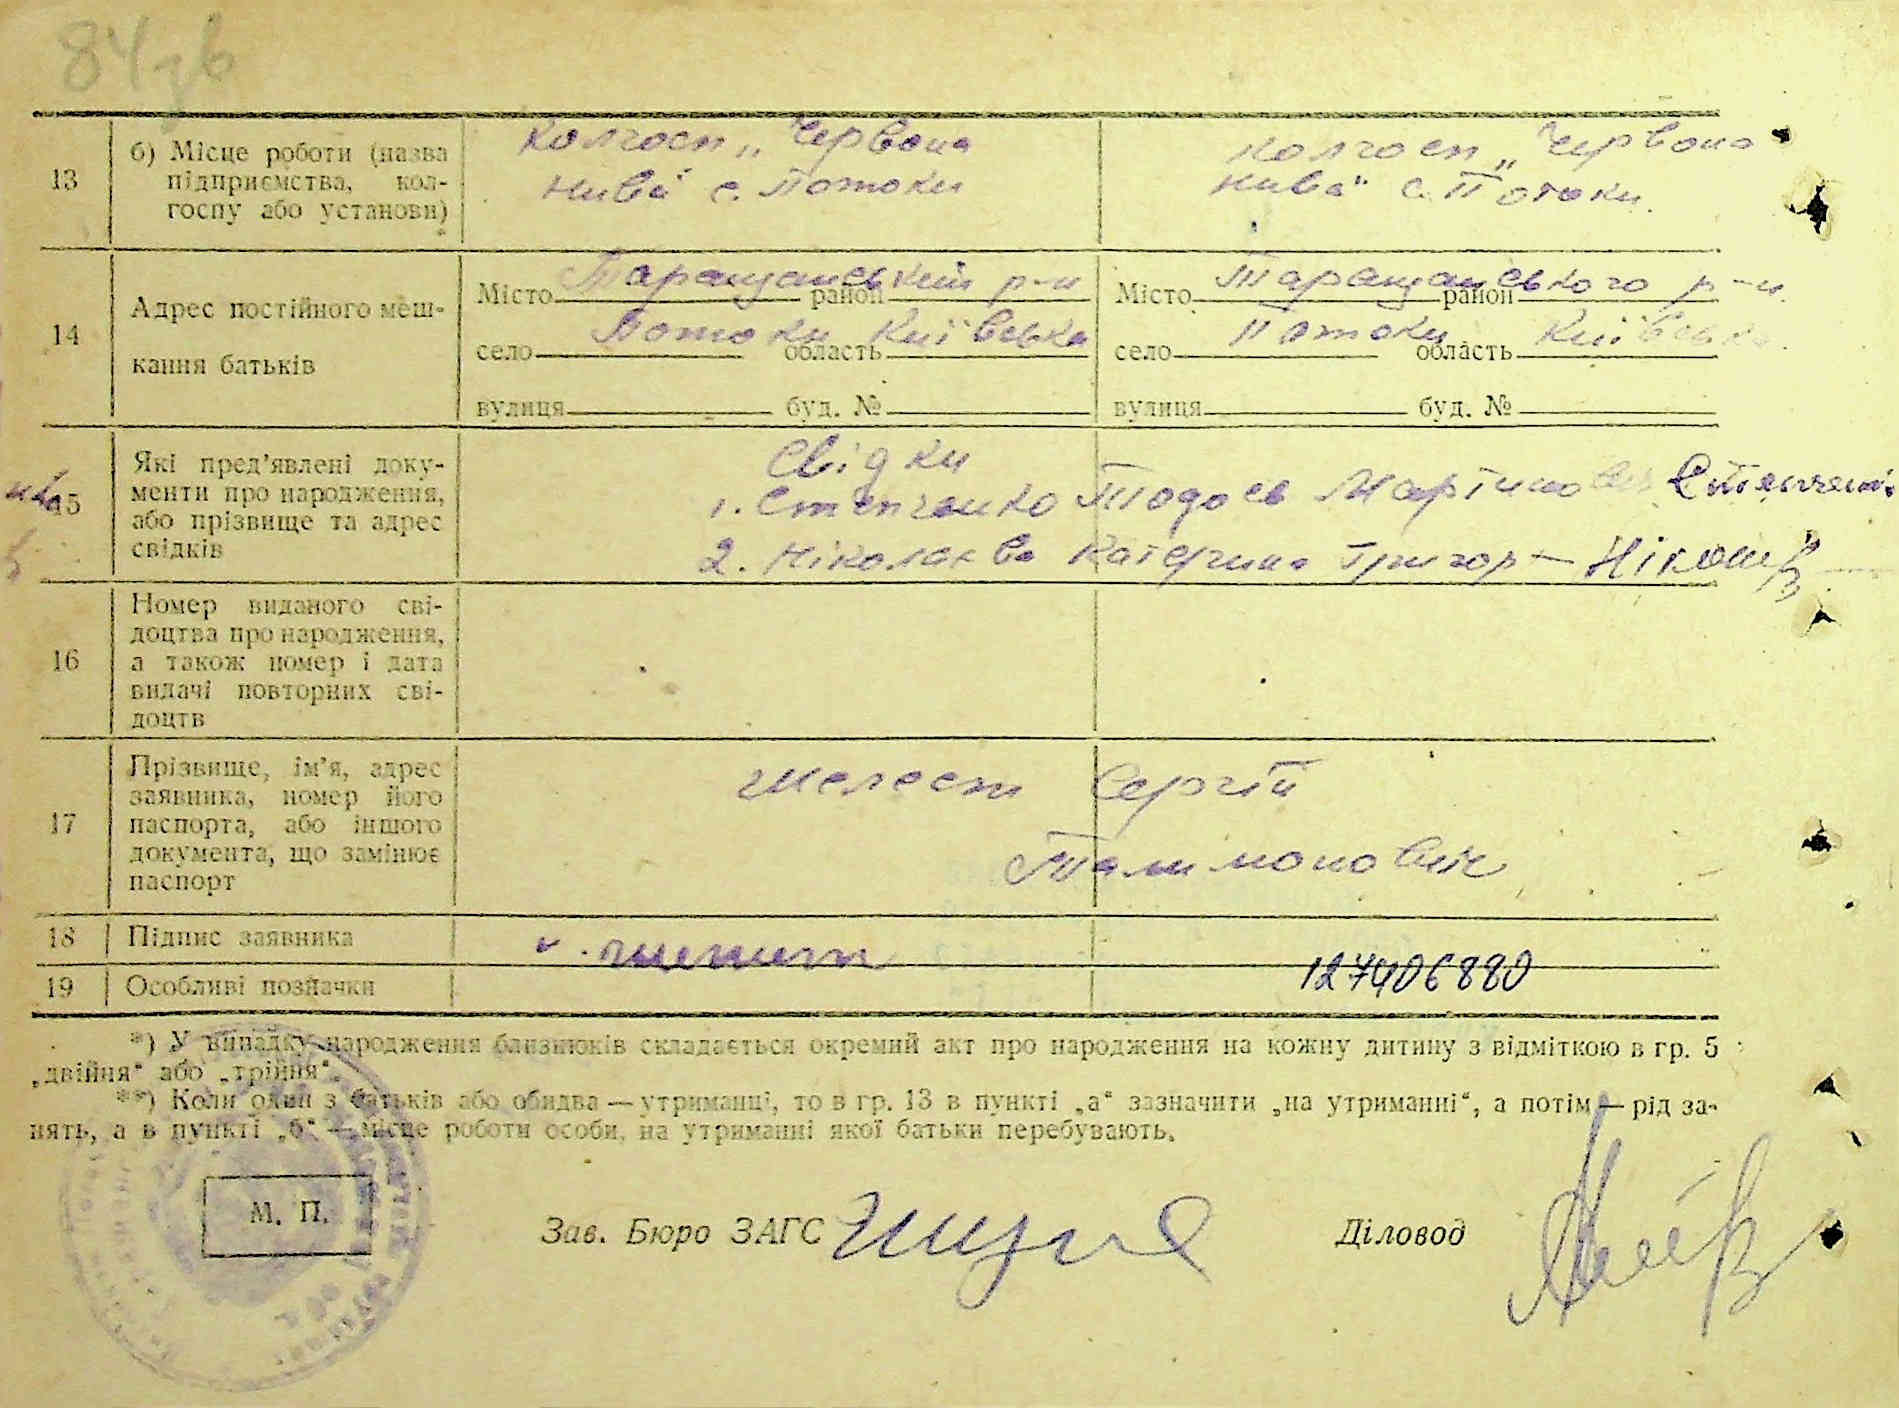 84зв
13
б) Місце роботи (назва
підприємства, кол-
госпу або установи)
Колгосп „Червона
Нива" с. Потоки
Колгосп „Червона
Нива" с. Потоки
14
Адрес постійного меш-
кання батьків
Місто Таращанський р-н район
село Потоки область Київська
вулиця буд. №
Місто Таращанського р-н район
село Потоки область Київська
вулиця буд. №
15
Які пред'явлені доку-
менти про народження,
або прізвище та адрес
свідків
Свідки
1. Степченко Тодось Мартинович
2. Ніколаєва Катерина Григор—
16
Номер виданого сві-
доцтва про народження,
а також номер і дата
видачі повторних сві-
доцтв
17
Прізвище, ім'я, адрес
заявника, номер його
паспорта, або іншого
документа, що замінює
паспорт
Шелест Сергій
Талимонович
18
Підпис заявника
19
Особливі позначки
127406880
*) У випадку народження близнюків складається окремий акт про народження на кожну дитину з відміткою в гр. 5
„двійня" або „трійня".
**) Коли один з батьків або обидва — утриманці, то в гр. 13 в пункті „а" зазначити „на утриманні", а потім — рід за-
нять, а в пункті „б" — місце роботи особи, на утриманні якої батьки перебувають.
М. П.
Зав. Бюро ЗАГС
Діловод